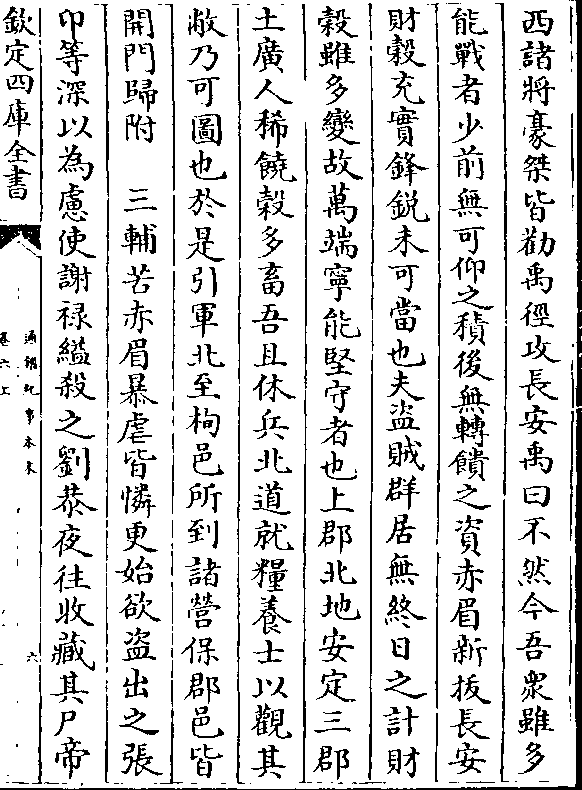 西諸將豪桀皆勸禹徑攻長安禹曰不然今吾衆雖多
能戰者少前無可仰之積後無轉饋之資赤眉新拔長安
財穀充實鋒銳未可當也夫盜賊群居無終日之計財
穀雖多變故萬端寧能堅守者也上郡北地安定三郡
土廣人稀饒穀多畜吾且休兵北道就糧養士以觀其
敝乃可圖也於是引軍北至栒邑所到諸營保郡邑皆
開門歸附　三輔苦赤眉暴虐皆憐更始欲盜出之張
卬等深以為慮使謝祿縊殺之劉恭夜往收藏其尸帝
欽定四庫全書
通鑑紀事本末
卷六上
六